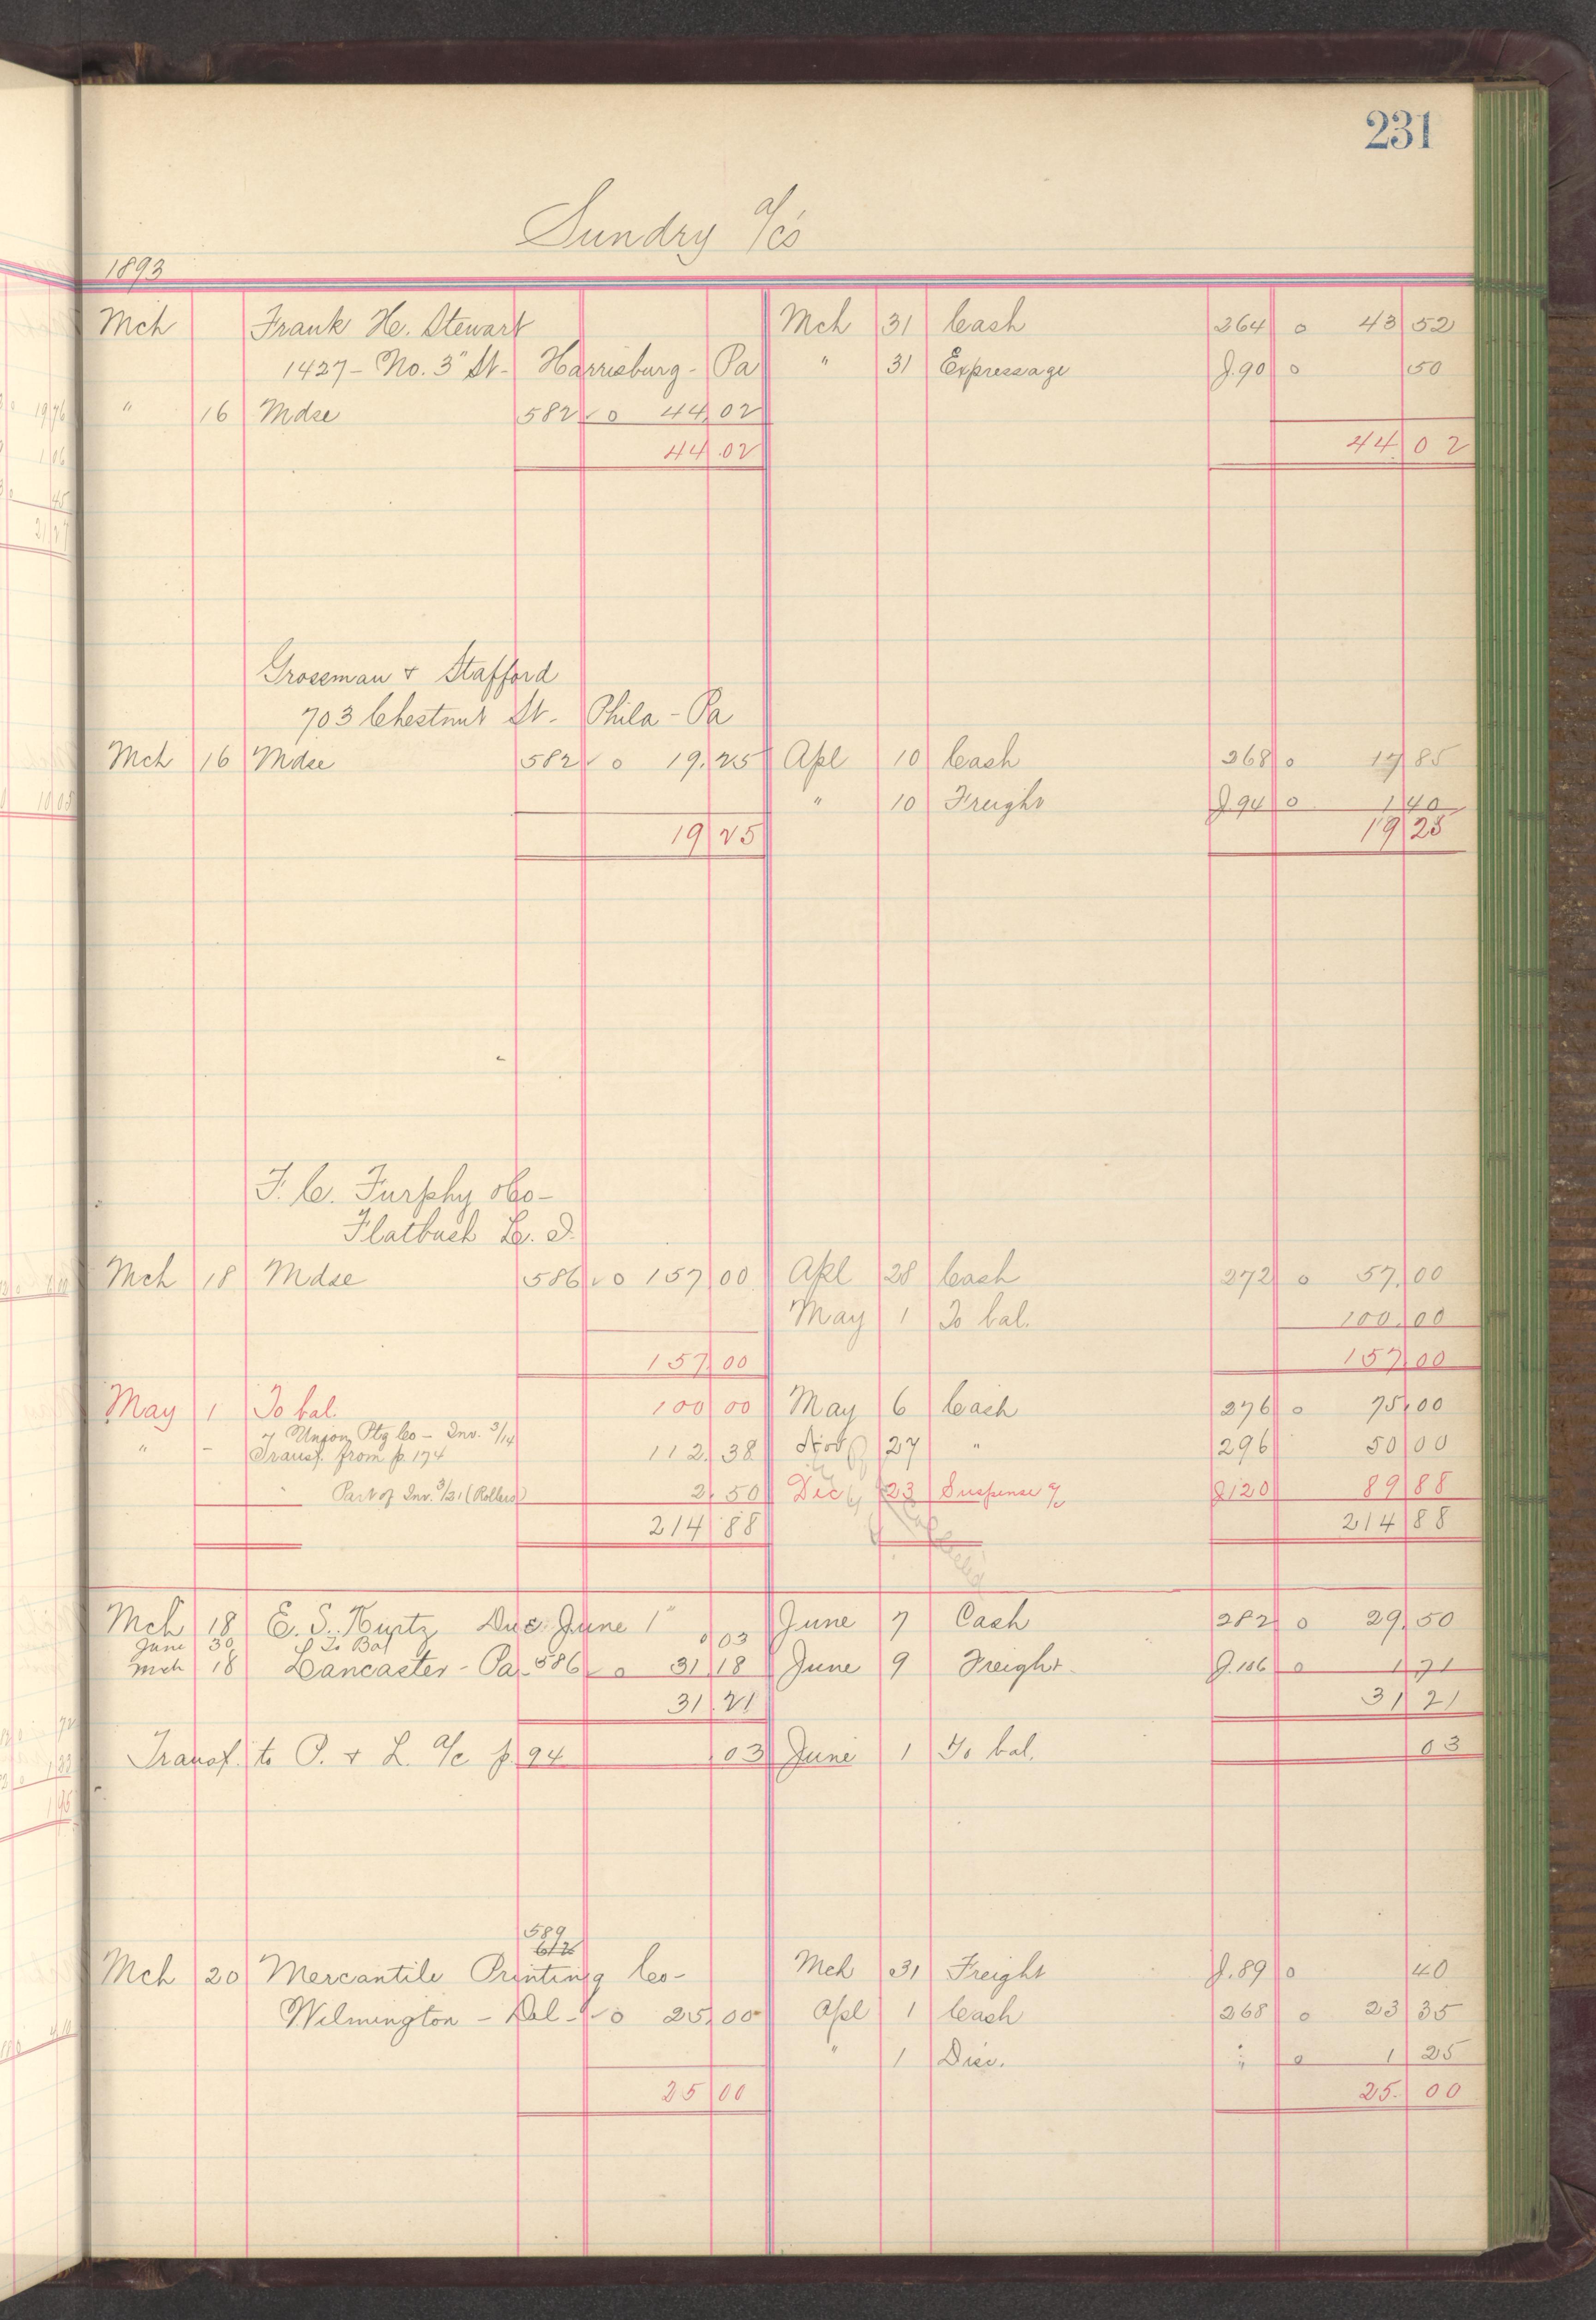 231
Sundry a/cs
1893
Mch Frank H. Stewart Mch 31 Cash 264 o 43 52
1427 - No. 3" St - Harrisburg - Pa " 31 Expressage J.90 o 50
" 16 Mdse 582 ✓ o 44.02
44.02 44.02
Grossman & Stafford
703 Chestnut St. Phila - Pa
Mch 16 Mdse 582 ✓ o 19.25 Apl 10 Cash 268 o 17 85
" 10 Freight J.94 o 1 40
19 25 19 25
F. C. Furphy & Co -
Flatbush L. I.
Mch 18 Mdse 586 ✓ o 157 00 Apl 28 Cash 272 o 57.00
May 1 To bal. 100.00
157 00 157 00
May 1 To bal. 100 00 May 6 Cash 276 o 75.00
Union Ptg Co - Inv. 3/14
" - Transf. from p. 174 112.38 Nov 27 " 296 50 00
" Part of Inv. 3/21 (Rollers) 2.50 Dec 23 Suspense a/c J120 89 88
214 88 214 88
Mch 18 E. S. Kurtz Due June 1" June 7 Cash 282 o 29.50
June 30 To Bal 03
Mch 18 Lancaster - Pa. 586 ✓ o 31 18 June 9 Freight J.106 o 1 71
31.21 31 21
Transf. to P. & L. a/c p. 94 03 June 1 To bal. 03
589
Mch 20 Mercantile Printing Co - Mch 31 Freight J.89 o 40
Wilmington - Del - ✓ o 25.00 Apl 1 Cash 268 o 23 35
" 1 Disc. " o 1 25
25 00 25.00